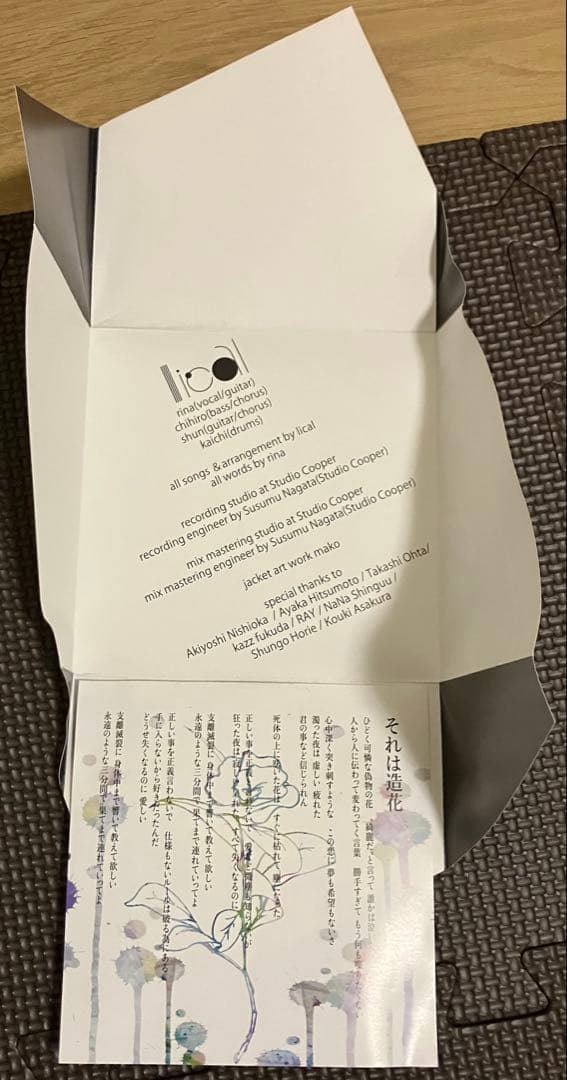 lical
rina(vocal/guitar)
chihiro(bass/chorus)
shun(guitar/chorus)
kaichi(drums)
all songs & arrangement by lical
all words by rina
recording studio at Studio Cooper
recording engineer by Susumu Nagata(Studio Cooper)
mix mastering studio at Studio Cooper
mix mastering engineer by Susumu Nagata(Studio Cooper)
jacket art work mako
special thanks to
Akiyoshi Nishioka / Ayaka Hitsumoto / Takashi Ohta/
kazz fukuda / RAY / NaNa Shinguu /
Shungo Horie / Kouki Asakura
それは造花
ひどく可憐な偽物の花 “綺麗だ”と言って 誰かは泣
人から人に伝わって変わってく言葉 勝手すぎて もう何も
心中深く突き刺すような この恋に夢も希望もないさ
濁った夜は 虚しい 疲れた
君の事など信じられん
死体の上に咲いた花は すぐに枯れて
正しい事を正義と
狂った夜は すべて失くなるのに
支離滅裂に 身体中まで響いて教えて欲しい
永遠のような三分間で 果てまで連れていってよ
正しい事を正義言わないで 仕様もないルールは破る為にある
手に入らないから好きだったんだ
どうせ失くなるのに 愛しい
支離滅裂に 身体中まで響いて教えて欲しい
永遠のような三分間で 果てまで連れていってよ